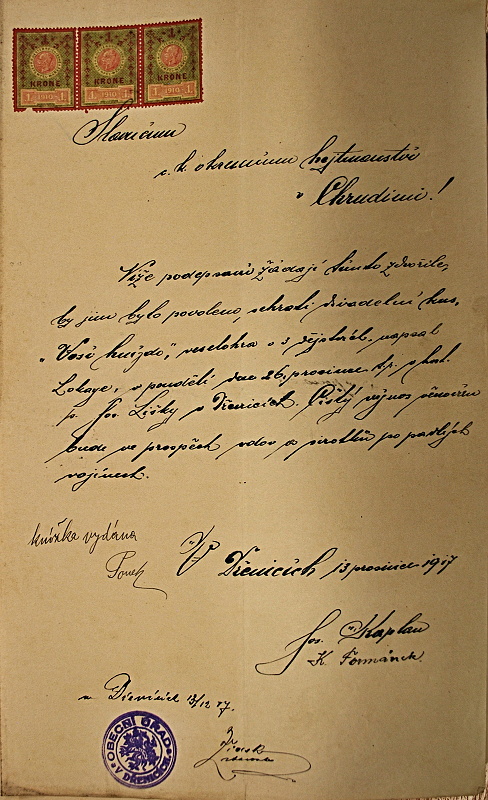 1 1 1
KRONE KRONE KRONE
1 1910 1 1 1910 1 1 1910 1
Slavnému
c. k. okresnímu hejtmanství
v Chrudimi!
Níže podepsaní žádají tímto zdvořile,
by jim bylo povoleno, sehrati divadelní kus,
"Vosí hnízdo", veselohra o 3 dějstvích, napsal
Lokaye, v pondělí dne 26. prosince t.r. v host.
p. Jos. Lišky v Dřenicích. Čistý výnos věnován
bude ve prospěch vdov a sirotků po padlých
vojínech.
knížka vydána
V Dřenicích 13 prosince 1917
Jos. Kaplan
K. Formánek.
v Dřenicích 13/12 17.
OBECNÍ ÚŘAD
V DŘENICÍCH